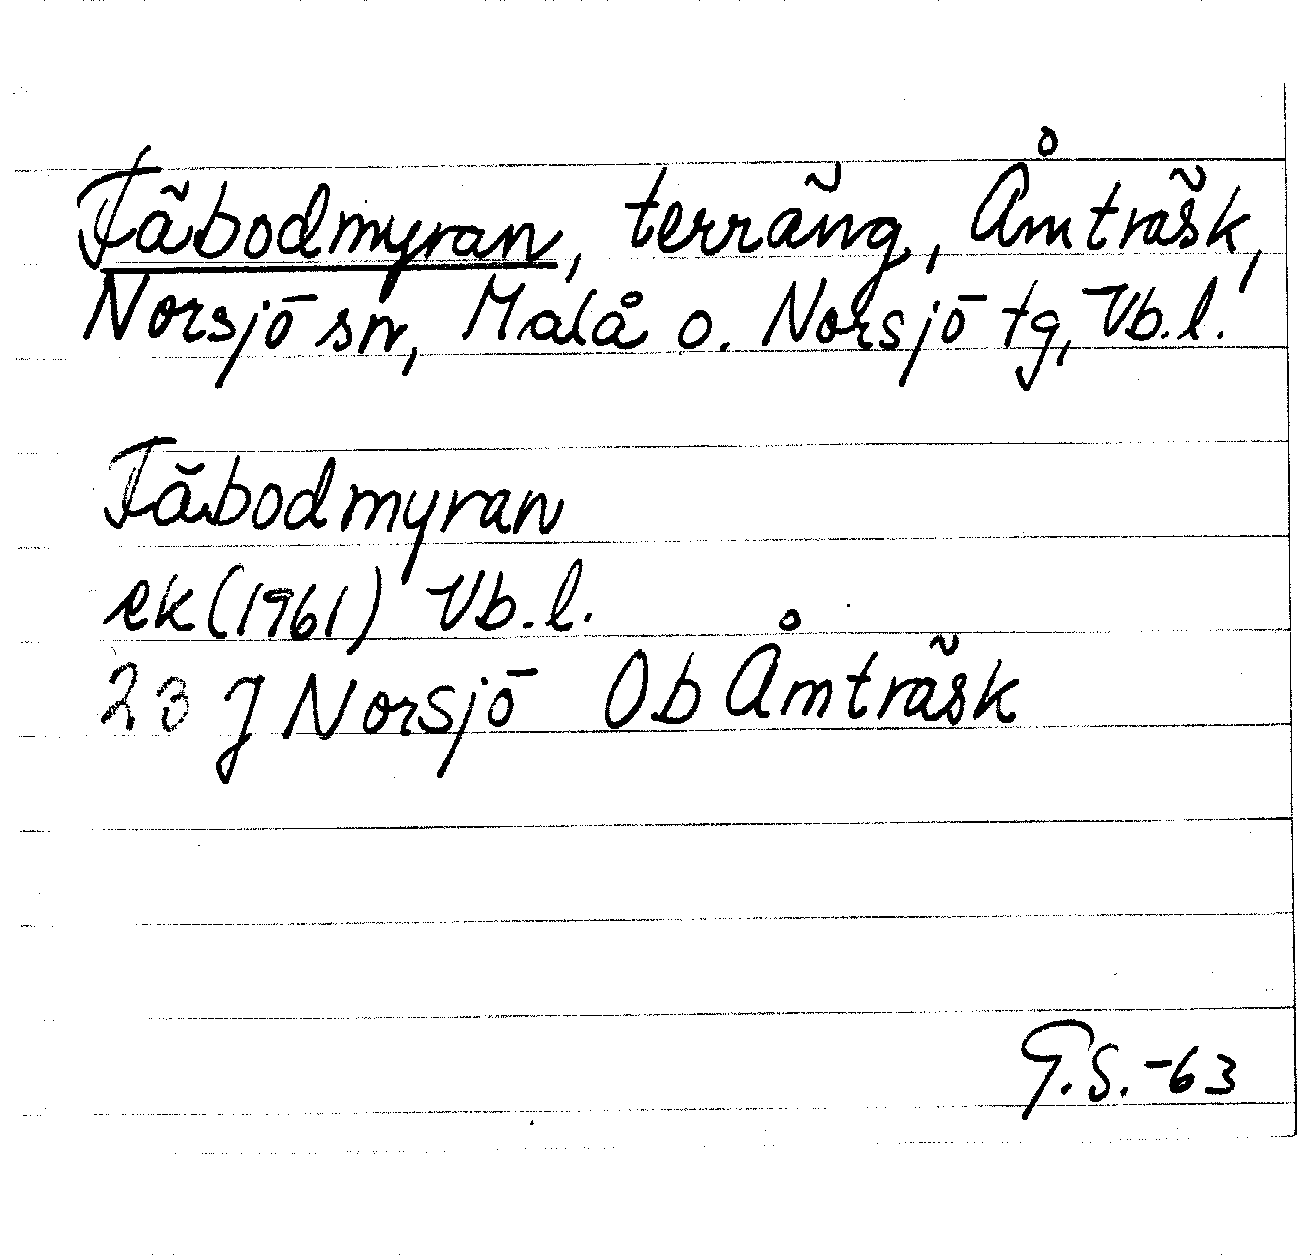 Fäbodmyran, terräng, Åmträsk,
Norsjö sn, Malå o. Norsjö tg, Vb.l.
Fäbodmyran
ek (1961) Vb.l.
23 J Norsjö Ob Åmträsk
G.S.-63